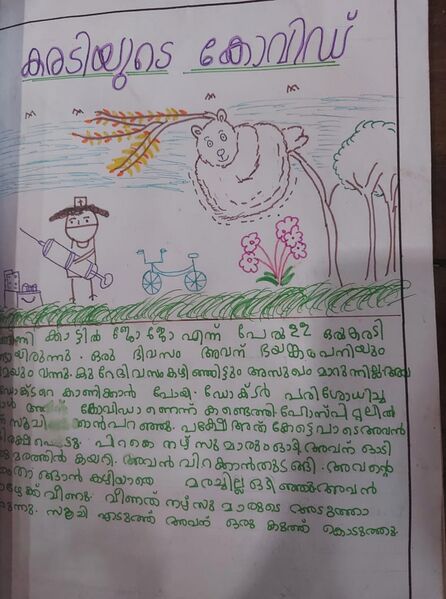 കരടിയുടെ കോവിഡ്
കാട്ടിൽ ജോജോ എന്ന് പേരുള്ള ഒരു കരടി
യിരുന്നു. ഒരു ദിവസം അവന് ഭയങ്കര പനിയും
വന്നു. കുറേദിവസം കഴിഞ്ഞിട്ടും അസുഖം മാറുന്നില്ല.
കാണിക്കാൻ പോയി. ഡോക്ടർ പരിശോധിച്ച
കോവിഡാണെന്ന് കണ്ടെത്തി. ഹോസ്പിറ്റലിൽ
പറഞ്ഞു. പക്ഷേ അത് കേട്ടപാടെ അവൻ
പിറകെ നഴ്സുമാരും ഓടി. അവൻ ഓടി
മരത്തിൽ കയറി. അവൻ വിറക്കാൻ തുടങ്ങി. അവന്റെ
താങ്ങാൻ കഴിയാതെ മരച്ചില്ല ഒടിഞ്ഞു അവൻ
വീണു. വീണത് നഴ്സുമാരുടെ അടുത്താ
സൂചി എടുത്ത് അവന് ഒരു കുത്ത് കൊടുത്തു.